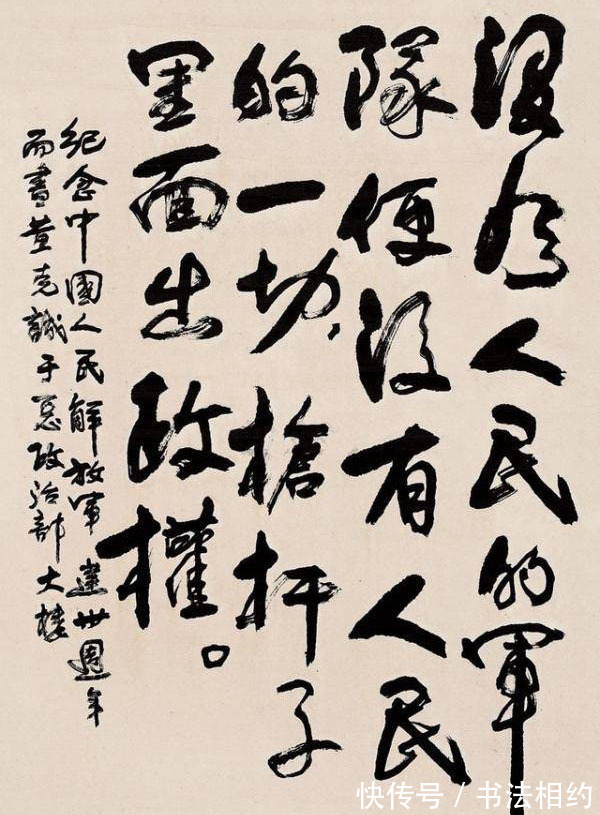 没有人民的軍
隊便没有人民
的一切，槍杆子
里面出政權。
紀念中國人民解放軍建卅週年
而書黄克誠于总政治部大楼
快传号 / 书法相约